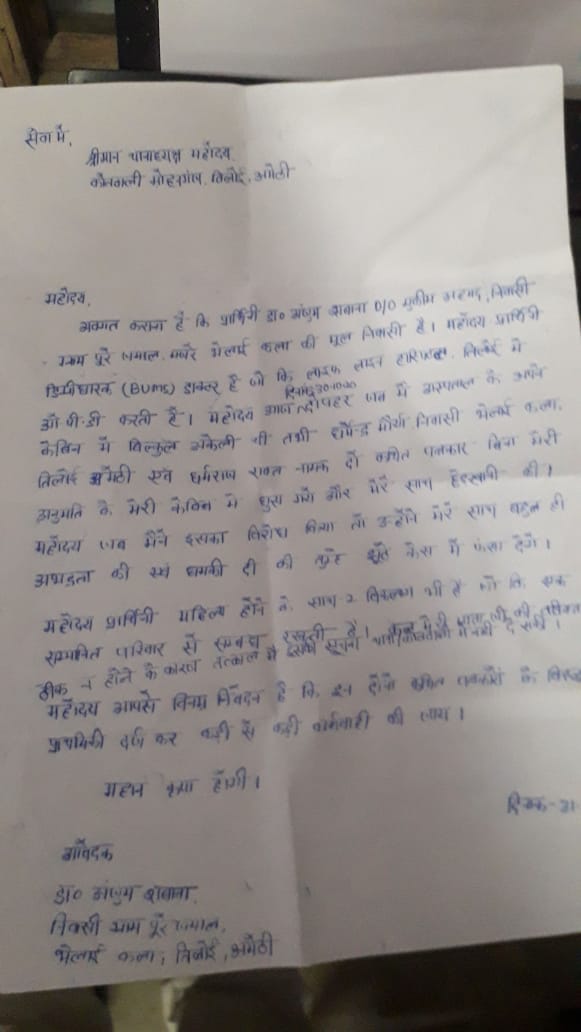 सेवा में,
श्रीमान थानाध्यक्ष महोदय,
कोतवाली मोहनगंज, तिलोई, अमेठी
महोदय,
अवगत कराना है कि प्रार्थिनी डा० अंजुम शबाना D/O मुकीम अहमद, निवासी
ग्राम पूरे जमाल, भेलाई कला की मूल निवासी है। महोदय प्रार्थिनी
डिग्रीधारक (BUMS) डाक्टर है जो कि लाइफ लाइन हास्पिटल, तिलोई में
ओ.पी.डी करती है। महोदय दोपहर जब मैं अस्पताल के अपने
केबिन में बिल्कुल अकेली थी तभी धर्मेन्द्र मौर्या निवासी भेलाई कला,
तिलोई अमेठी एवं धर्मराज रावत नामक दो कथित पत्रकार बिना मेरी
अनुमति के मेरी केबिन में घुस गये और मेरे साथ की।
महोदय जब मैंने इसका विरोध किया तो उन्होंने मेरे साथ बहुत ही
अभद्रता की एवं धमकी दी की तुम्हे झूठे केस में फंसा देंगे।
महोदय प्रार्थिनी महिला होने के साथ-2 विकलांग भी है जो कि एक
सम्मानित परिवार से सम्बन्ध रखती है। मेरी माता जी की तबियत
ठीक न होने के कारण तत्काल में इसकी सूचना थाना कोतवाली में नहीं दे सकी।
महोदय आपसे विनम्र निवेदन है कि इन दोनों कथित पत्रकारों के विरुद्ध
प्राथमिकी दर्ज कर कड़ी से कड़ी कार्यवाही की जाय।
महान कृपा होगी।
दिनांक-31
आवेदक
डा० अंजुम शबाना,
निवासी ग्राम पूरे जमाल,
भेलाई कला, तिलोई, अमेठी